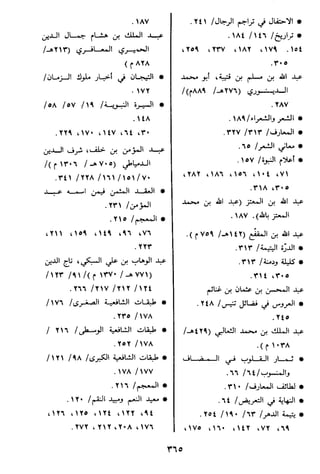 . ١٨٧
عبد الملك بن هشام جمال الدين
الحميري المعافري (٢١٣هـ/
٨٢٨ م)
• التيجان في أخبار ملوك الزمان/
. ١٧٢
• الروض / ١٩/ ٥٧/ ٥٨/
. ١٤٨
٣٠، ٦٤، ١٤٧، ١٧٠، ٢٢٩ .
عبد المؤمن بن خلف، شرف الدين
الدمياطي (٧٠٥ هـ/ ١٣٠٦ م)/
٧٠/ ١٥١/ ١٦١/ ٢٢٨/ ٣٤١ .
• العقد الثمين فيمن اسمه عبد
المؤمن/ ٢٣١ .
• المعجم/ ٢١٥ .
٧٦، ٩٦، ١٤٩، ١٥٩، ٢١١،
. ٢٢٣
عبد الوهاب بن علي السبكي، تاج الدين
(٧٧١ هـ/ ١٣٧٠ م)/ ٩١/ ١٢٣/
١٢٤/ ٢١٢/ ٢١٧/ ٢٦٦ .
• طبقات الشافعية الصغرى/ ١٧٦/
١٧٨/ ٢٣٥ .
• طبقات الشافعية الوسطى/ ٢١٦ /
١٧٨/ ٢٥٢ .
• طبقات الشافعية الكبرى/ ٩٨/ ١٢١/
١٧٧/ ١٧٨ .
• المعجم/ ٢١٦ .
• معيد النعم ومبيد النقم/ ١٢٠ .
٩٤، ١٢٢، ١٢٤، ١٢٥، ١٢٦،
١٧٦، ٢٠٨، ٢١٢، ٢٧٢ .
• الاحتفال في تراجم الرجال/ ٢٤١ .
• التاريخ/ ١٤٦/ ١٨٤ .
١٥٤، ١٧٩، ١٨٢، ٢٣٧، ٢٥٩،
. ٣٠٥
عبد الله بن مسلم بن قتيبة، أبو محمد
الدينوري (٢٧٦هـ/ ٨٨٩م)/
. ٢٨٧
• الشعر والشعراء/ ١٨٩ .
• المعارف/ ٣١٣/ ٣٢٧ .
• معاني الشعر/ ٦٥ .
• أعلام النبوة/ ١٥٧ .
٧١، ١٠٤، ١٥٦، ١٨٦، ٢٨٢،
٣٠٥، ٣١٨ .
عبد الله بن محمد
. ١٨٧
عبد الله بن المقفع (١٤٢هـ/ ٧٥٩ م) .
• الدرة اليتيمة/ ٣١٣ .
• كليلة ودمنة/ ٣١٣ .
٣٠٥، ٣١٤ .
• العروس في فضائل تنيس/ ٢٤٨ .
. ٢٤٥
عبد الملك بن محمد الثعالبي (٤٢٩هـ/
١٠٣٨ م) .
• ثمار القلوب في المضاف
والمنسوب/ ٦٤/ ٦٦ .
• لطائف المعارف/ ٣١٠ .
• النهاية في التعريض/ ٦٤ .
• يتيمة الدهر/ ٦٣/ ١٩٠/ ٢٥٤ .
٦٩، ٧٢، ١٤٢، ١٦٠، ١٧٥،
٣٦٥